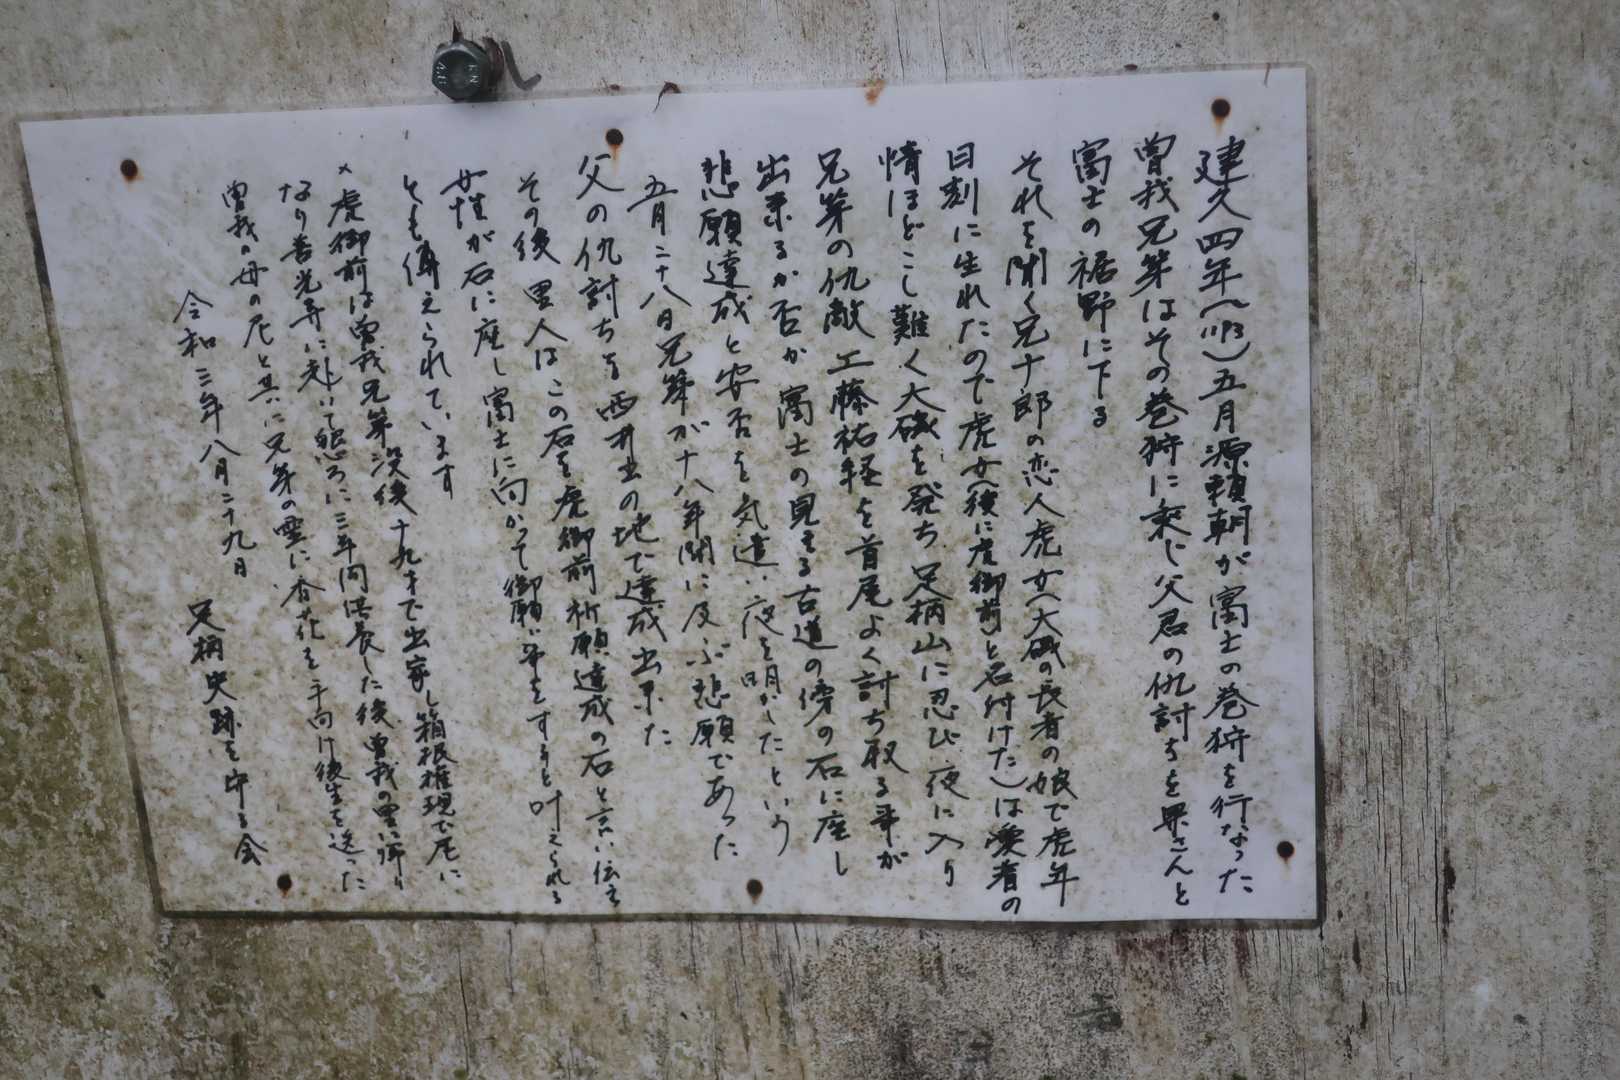 建久四年(1193)五月源頼朝が富士の巻狩を行なった
曽我兄弟はその巻狩に乗じ父君の仇討ちを果さんと
富士の裾野に下る
それを聞く兄十郎の恋人虎女(大磯の長者の娘で虎年
日刻に生れたので虎女(後に虎御前)と名付けた)は愛着の
情ほどこし難く大磯を発ち足柄山に忍び夜に入り
兄弟の仇敵工藤祐経を首尾よく討ち取る事が
出来るか否か富士の見える古道の傍の石に座し
悲願達成と安否を気遣い夜を明かしたという
五月二十八日兄弟が十八年間に及ぶ悲願であった
父の仇討ちを西井出の地で達成出来た
その後里人はこの石を虎御前祈願達成の石と言い伝え
女性が石に座し富士に向かって御願い事をすると叶えられる
とも傳えられています
×虎御前は曽我兄弟没後十九才で出家し箱根権現で尼に
なり善光寺に赴いて懇ろに三年間供養した後曽我の里に帰り
曽我の母の尼と共に兄弟の霊に香花を手向け後生を送った
令和三年八月二十九日 足柄史跡を守る会
KN